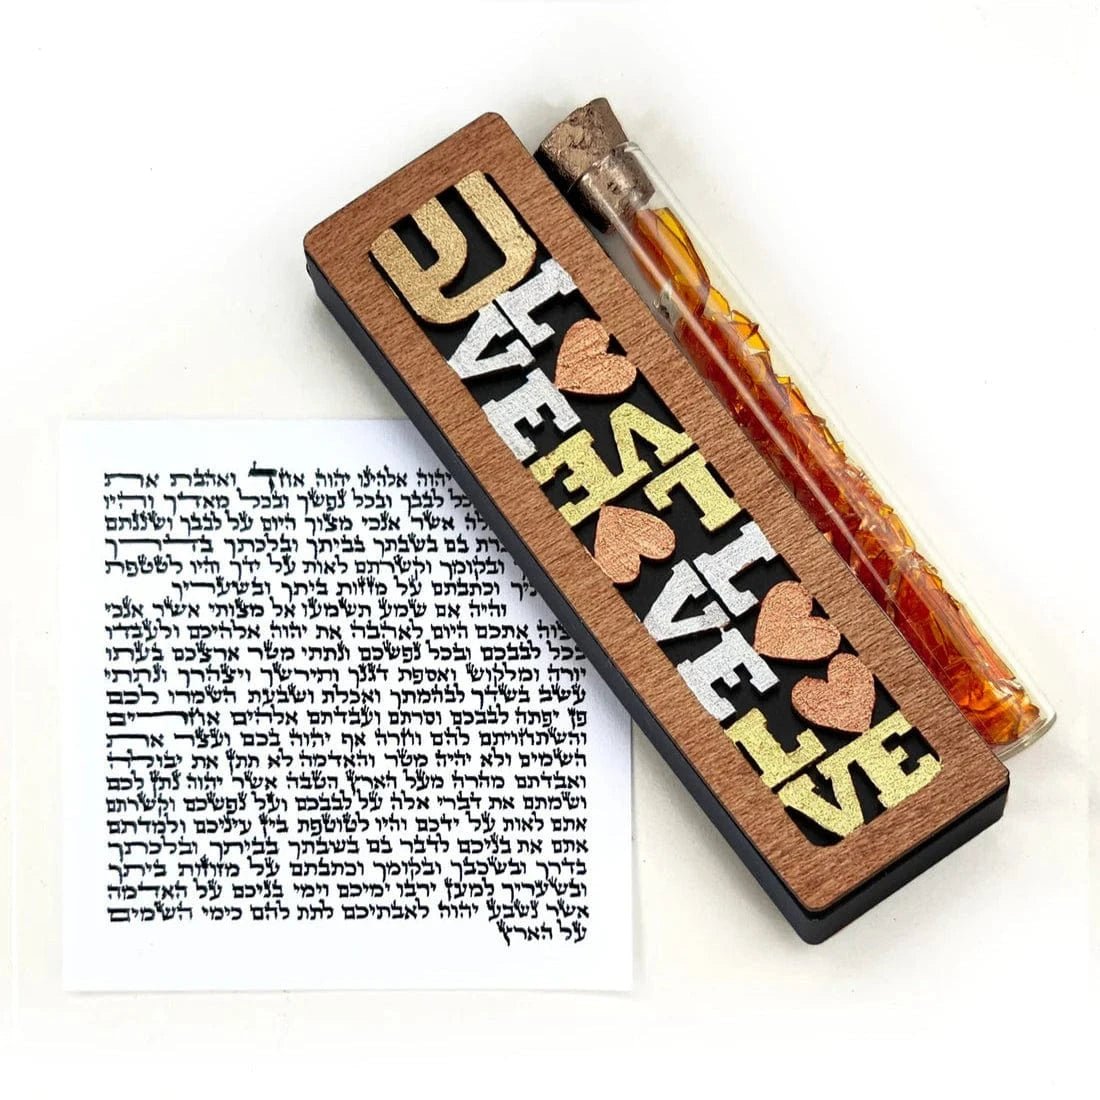 ש
L VE
L VE
L VE
L VE
יהוה אלהינו יהוה אחד ואהבת את
לבבך ובכל נפשך ובכל מאדך והיו
אשר אנכי מצוך היום על לבבך ושננתם
בם בשבתך בביתך ובלכתך בדרך
ובקומך וקשרתם לאות על ידך והיו לטטפת
וכתבתם על מזזות ביתך ובשעריך
והיה אם שמע תשמעו אל מצותי אשר אנכי
אתכם היום לאהבה את יהוה אלהיכם ולעבדו
לבבכם ובכל נפשכם ונתתי מטר ארצכם בעתו
יורה ומלקוש ואספת דגנך ותירשך ויצהרך ונתתי
עשב בשדך לבהמתך ואכלת ושבעת השמרו לכם
פן יפתה לבבכם וסרתם ועבדתם אלהים אחרים
והשתחויתם להם וחרה אף יהוה בכם ועצר את
השמים ולא יהיה מטר והאדמה לא תתן את יבולה
ואבדתם מהרה מעל הארץ הטבה אשר יהוה נתן לכם
ושמתם את דברי אלה על לבבכם ועל נפשכם וקשרתם
אתם לאות על ידכם והיו לטוטפת בין עיניכם ולמדתם
אתם את בניכם לדבר בם בשבתך בביתך ובלכתך
בדרך ובשכבך ובקומך וכתבתם על מזוזות ביתך
ובשעריך למען ירבו ימיכם וימי בניכם על האדמה
אשר נשבע יהוה לאבתיכם לתת להם כימי השמים
על הארץ